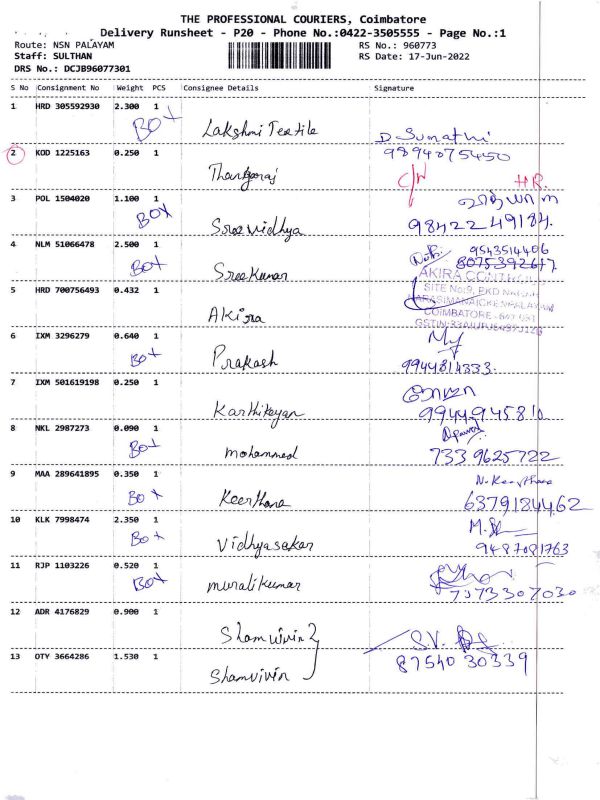 THE PROFESSIONAL COURIERS, Coimbatore
Delivery Runsheet - P20 - Phone No.:0422-3505555 - Page No.:1
Route: NSN PALAYAM RS No.: 960773
Staff: SULTHAN RS Date: 17-Jun-2022
DRS No.: DCJB96077301
S No Consignment No Weight PCS Consignee Details Signature
1 HRD 305592930 2.300 1
BOX Lakshmi Textile D Sumathi
2 KOD 1225163 0.250 1 9894075450
Thangaraj C/W H.R.
3 POL 1504020 1.100 1
BOX Sreevidhya 9842249184
4 NLM 51066478 2.500 1 9543514406
BOX Sreekumar 8075392617
AKIRA
5 HRD 700756493 0.432 1 SITE No:9, PKD
Akira NARASIMANAICKENPALAYAM
COIMBATORE - 641 031
6 IXM 3296279 0.640 1
BOX Prakash 9944814333
7 IXM 501619198 0.250 1
Karthikeyan 9944945810
8 NKL 2987273 0.090 1
BOX mohammed 7339625722
9 MAA 289641895 0.350 1 N. Keerthana
BOX Keerthana 6379184462
10 KLK 7998474 2.350 1
BOX Vidhyasekar 9487081763
11 RJP 1103226 0.520 1
BOX muralikumar 7373307030
12 ADR 4176829 0.900 1
Shamvivin S.V.
13 OTY 3664286 1.530 1 87540 30339
Shamvivin